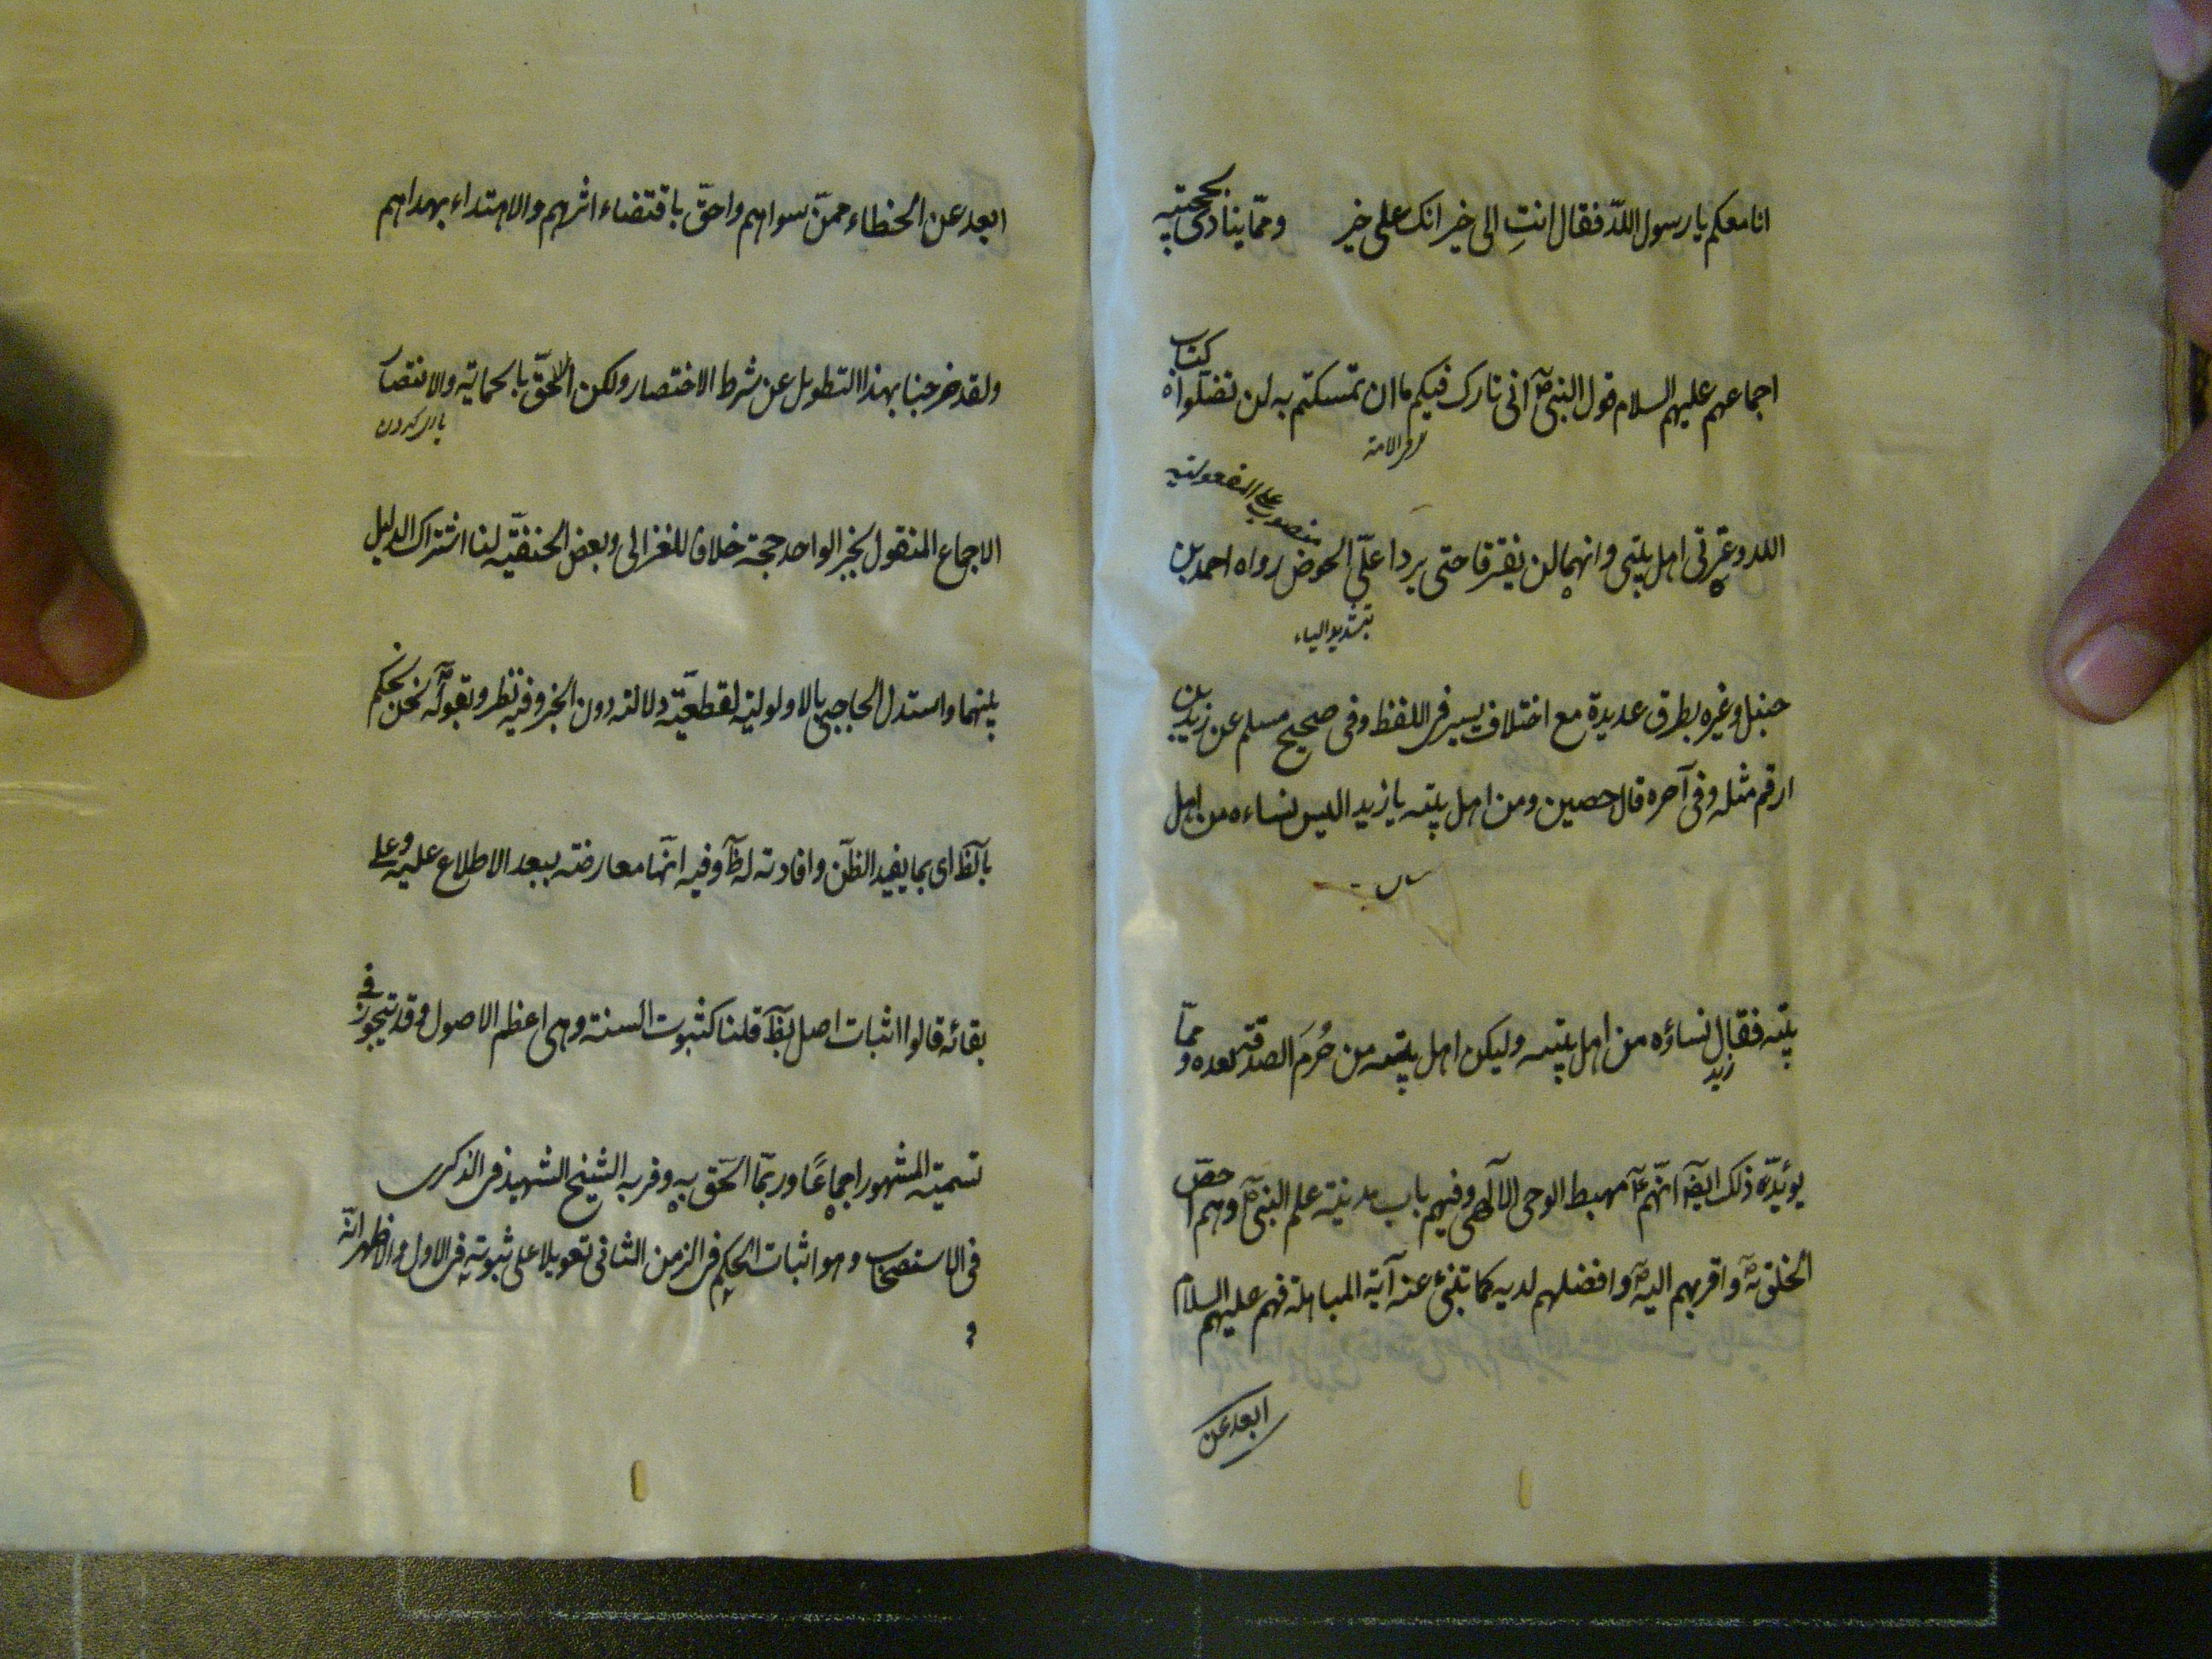 انا معكم يا رسول اللّه فقال انتِ الى خير انك على خير ومما ينادى بحجيته
اجماعهم عليهم السلام قول النبى ص انى تارك فيكم ما ان تمسكتم به لن تضلوا كتاب
منصوب على المفعولية
اللّه وعترتى اهل بيتى وانهما لن يفترقا حتى يردا علىّ الحوض رواه احمد بن
بتشديد الياء
حنبل وغيره بطرق عديدة مع اختلاف يسير فى اللفظ وفى صحيح مسلم عن زيد بن
ارقم مثله وفى آخره قال حصين ومن اهل بيته يا زيد اليس نساءه من اهل
بيته فقال زيد نساؤه من اهل بيته وليكن اهل بيته من حُرِمَ الصدقة بعده ومما
يؤيّد ذلك ايضا انهم ع مهبط الوحى الالهى وفيهم باب مدينة علم النبى ص وهم اخصّ
الخلق به ص واقربهم اليه ص وافضلهم لديه كما تنبئ عنه آية المباهلة فهم عليهم السلام
ابعد عن
ابعد عن الخطاء ممّن سواهم واحقّ باقتضاء اثرهم والاهتداء بهداهم
ولقد خرجنا بهذا التطويل عن شرط الاختصار ولكن الحقّ بالحماية والانتصار
يارى كردن
الاجماع المنقول بخبر الواحد حجة خلافا للغزالى وبعض الحنفيّه لنا اشتراك الدليل
بينهما واستدل الحاجبى بالاولوليته لقطعيّة دلالته دون الخبر وفيه نظر وبقوله ص نحن نحكم
بالظ اى بما يفيد الظنّ وافادته له ظ وفيه انّها معارضة ببعد الاطلاع عليه وعلى
بقائه قالوا اثبات اصل بظ قلنا كثبوت السنة وهى اعظم الاصول وقد يتجوز فى
تسميته المشهور اجماعًا وربمّا الحق به وقربه الشيخ الشهيد فى الذكرى
فى الاستصحاب وهو اثبات الحكم فى الزمن الثانى تعويلا على ثبوته فى الاول والاظهر انّه